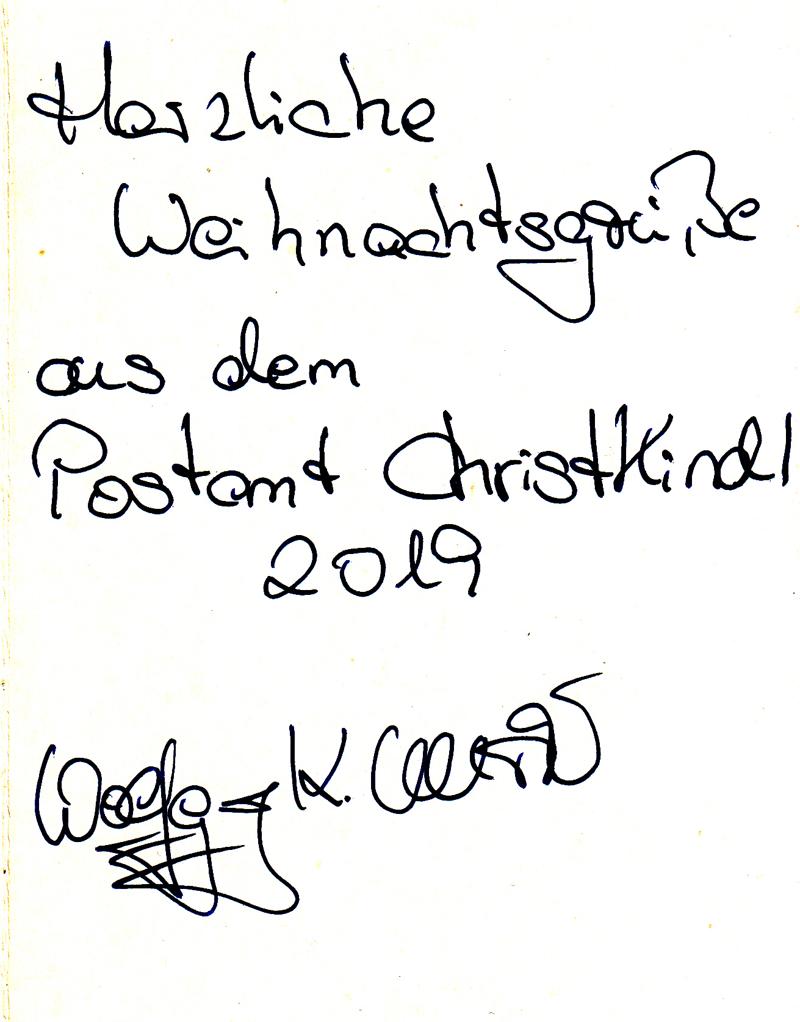 Herzliche
Weihnachtsgrüße
aus dem
Postamt Christkindl
2019
Wolfgang K.